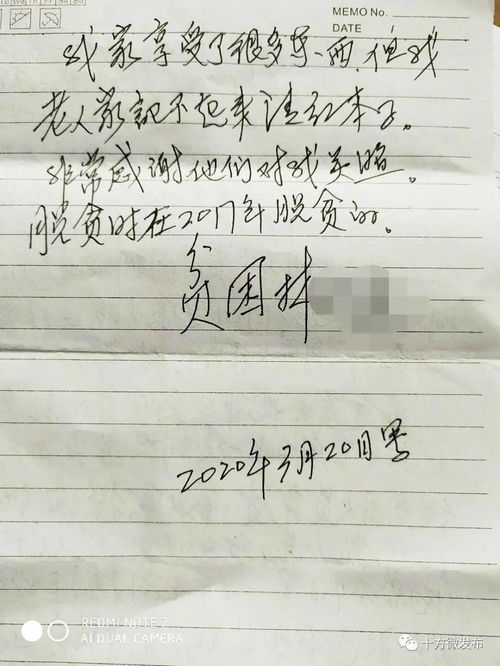 Mo Tu We Th Fr Sa Su
MEMO No.
DATE
我家享受了很多东西,但我
老人家记不起来请红本子。
非常感谢他们对我关照。
脱贫时在2017年脱贫的。
贫困林
2020年3月20日
REDMI NOTE 7
AI DUAL CAMERA
十方微发布